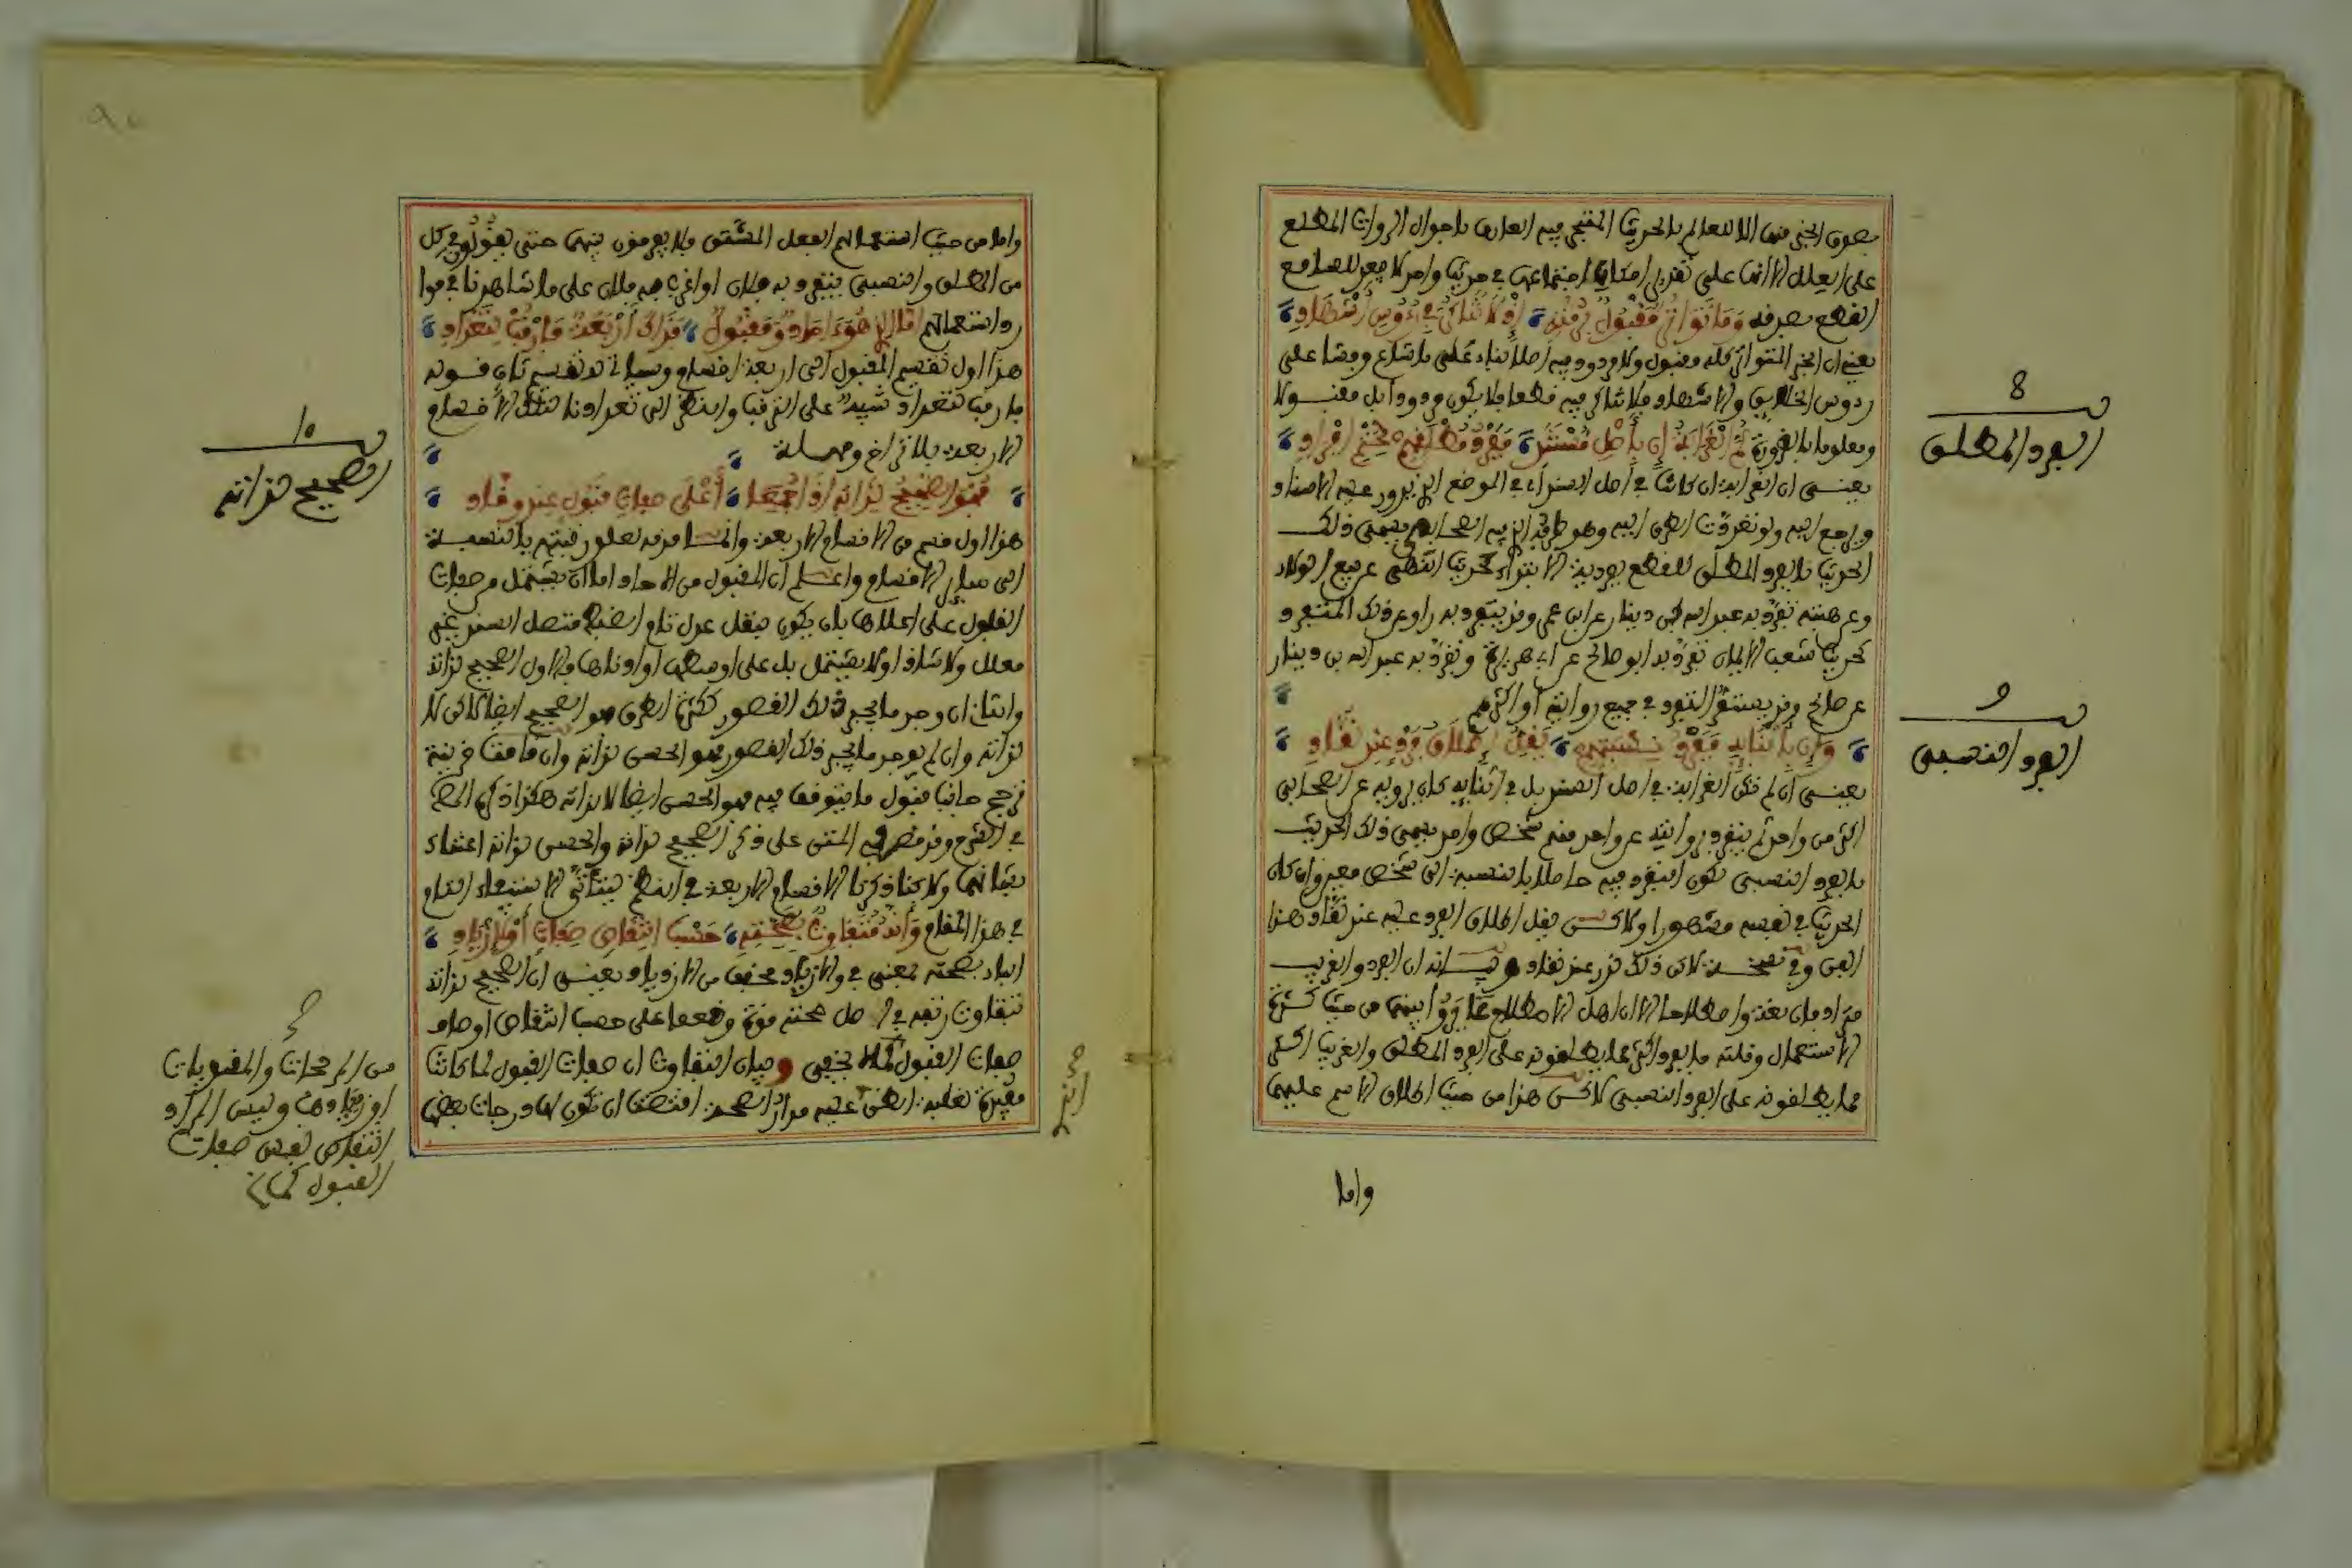 بصدق الخبر فيها الا للعالم بالحديث المتبحر فيه العارف باحوال الروات المطلع
على العلل لانها على تقدير امكان اجتماعها في حديث واحد لا يفيد للسامع
القطع بصدقه وما تواتر مقبول برمته اذ لا شك في رءوس اشهاد
يعني ان الخبر المتواتر كله مقبول ولا مردود فيه اصلا بناء على ما شاع وفشا على
رءوس الخلايق والاشهاد فلا شك فيه قطعا فلا يكون مردودا بل مقبولا
ومعلوما بالضرورة ثم الغرابة ان باصل مستند ففرد مطلق
يعني ان الغرابة ان كانت في اصل السند اي في الموضع الذي يدور عليه الاسناد
ويرجع اليه ولو تعددت الطرق اليه وهو طرفه الذي فيه الصحابي فيسمى ذلك
الحديث بالفرد المطلق للقطع بفردية كحديث النهي عن بيع الولاء
وعن هبته تفرد به عبد الله بن دينار عن ابن عمر وقد يتفرد به راو عن ذلك المتفرد
كحديث شعب الايمان تفرد به ابو صالح عن ابي هريرة وتفرد به عبد الله بن دينار
عن صالح وقد يستمر التفرد في جميع رواته او اكثرهم
وان باثنايه ففرد نسبتهم يقل اطلاق فرد عند نقاد
يعني ان لم تكن الغرابة في اصل السند بل في اثنايه كان يرويه عن الصحابي
اكثر من واحد ثم يتفرد بروايته عن واحد منهم شخص واحد فيسمى ذلك الحديث
بالفرد النسبي لكون التفرد فيه حاصلا بالنسبة الى شخص معين وان كان
الحديث في نفسه مشهورا ولاكن يقل اطلاق الفرد عليه عند نقاد هذا
الفن وفي نسخة لاكن ذلك نزر عند نقاد وبيانه ان الفرد والغريب
مترادفان لغة واصطلاحا الا ان اهل الاصطلاح غايروا بينهما من حيث كثرة
الاستعمال وقلته فالفرد اكثر ما يطلقونه على الفرد المطلق والغريب اكثر
مما يطلقونه على الفرد النسبي لاكن هذا من حيث اطلاق الاسم عليهما
واما
8
الفرد المطلق
9
الفرد النسبي
واما من حيث استعمالهم الفعل المشتق فلا يفرقون بينهما حتى يقولون في كل
من المطلق والنسبي يتفرد به فلان او اغرب به فلان على ما شاهدنا في موا
رد استعمالهم فذاك اربعة فارقب لتعداد
هذا اول تقسيم المقبول الى اربعة اقسام وسياتي له تقسيم ثان قوله
فارقب لتعداد تنبيه على الترقب والنظر الى تعدادنا لتلك الاقسام
الاربعة بلا تراخ ومهلة
اعلى صفات قبول عند وقاد
هذا اول قسم من الاقسام الاربعة وانما قدمه لعلو رتبته بالنسبة
الى ساير الاقسام واعلم ان المقبول من الاحاد اما ان يشتمل من صفات
القبول على اعلاها بان يكون بنقل عدل تام الضبط متصل السند غير
معلل ولا شاذ اولا يشتمل بل على اوسطها او ادناها والاول الصحيح لذاته
والثاني ان وجد ما يجبر ذلك القصور ككثرة الطرق فهو الصحيح ايضا لاكن لا
لذاته وان لم يوجد ما يجبر ذلك القصور فهو الحسن لذاته وان قامت قرينة
ترجح جانب قبول ما يتوقف فيه فهو الحسن ايضا لا لذاته هكذا ذكره المص
في الشرح وقد قصر في المتن على ذكر الصحيح لذاته والحسن لذاته اعتناء
بشانهما ولاكنا ذكرنا الاقسام الاربعة في النظم ليتاتى الاستيفاء التام
في هذا المقام وانه متفاوت بصحته حسب انتقاص صفات او ازياد
الباء بصحته بمعنى في والازياد مخفف من الازدياد يعني ان الصحيح لذاته
تتفاوت رتبه في اصل صحته قوة وضعفا على حسب انتقاص اوصاف
صفات القبول كما لا يخفى وبيان التفاوت ان صفات القبول لما كانت
مفيدة لغلبة الظن عليه مدار الصحة اقتضت ان تكون لها درجات بعضها
10
الصحيح لذاته
من المرجحات والمقويات
او زيادتها وليس المراد
انتقاص نفس صفات
القبول
الذي